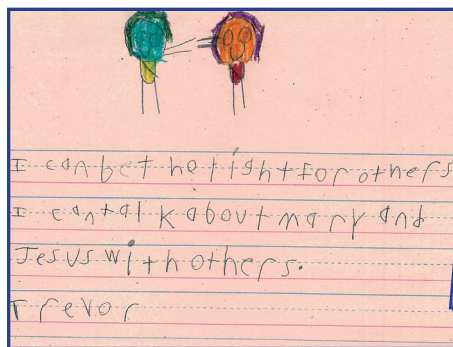 I can be the light for others
I can talk about mary and
Jesus with others.
Trevor